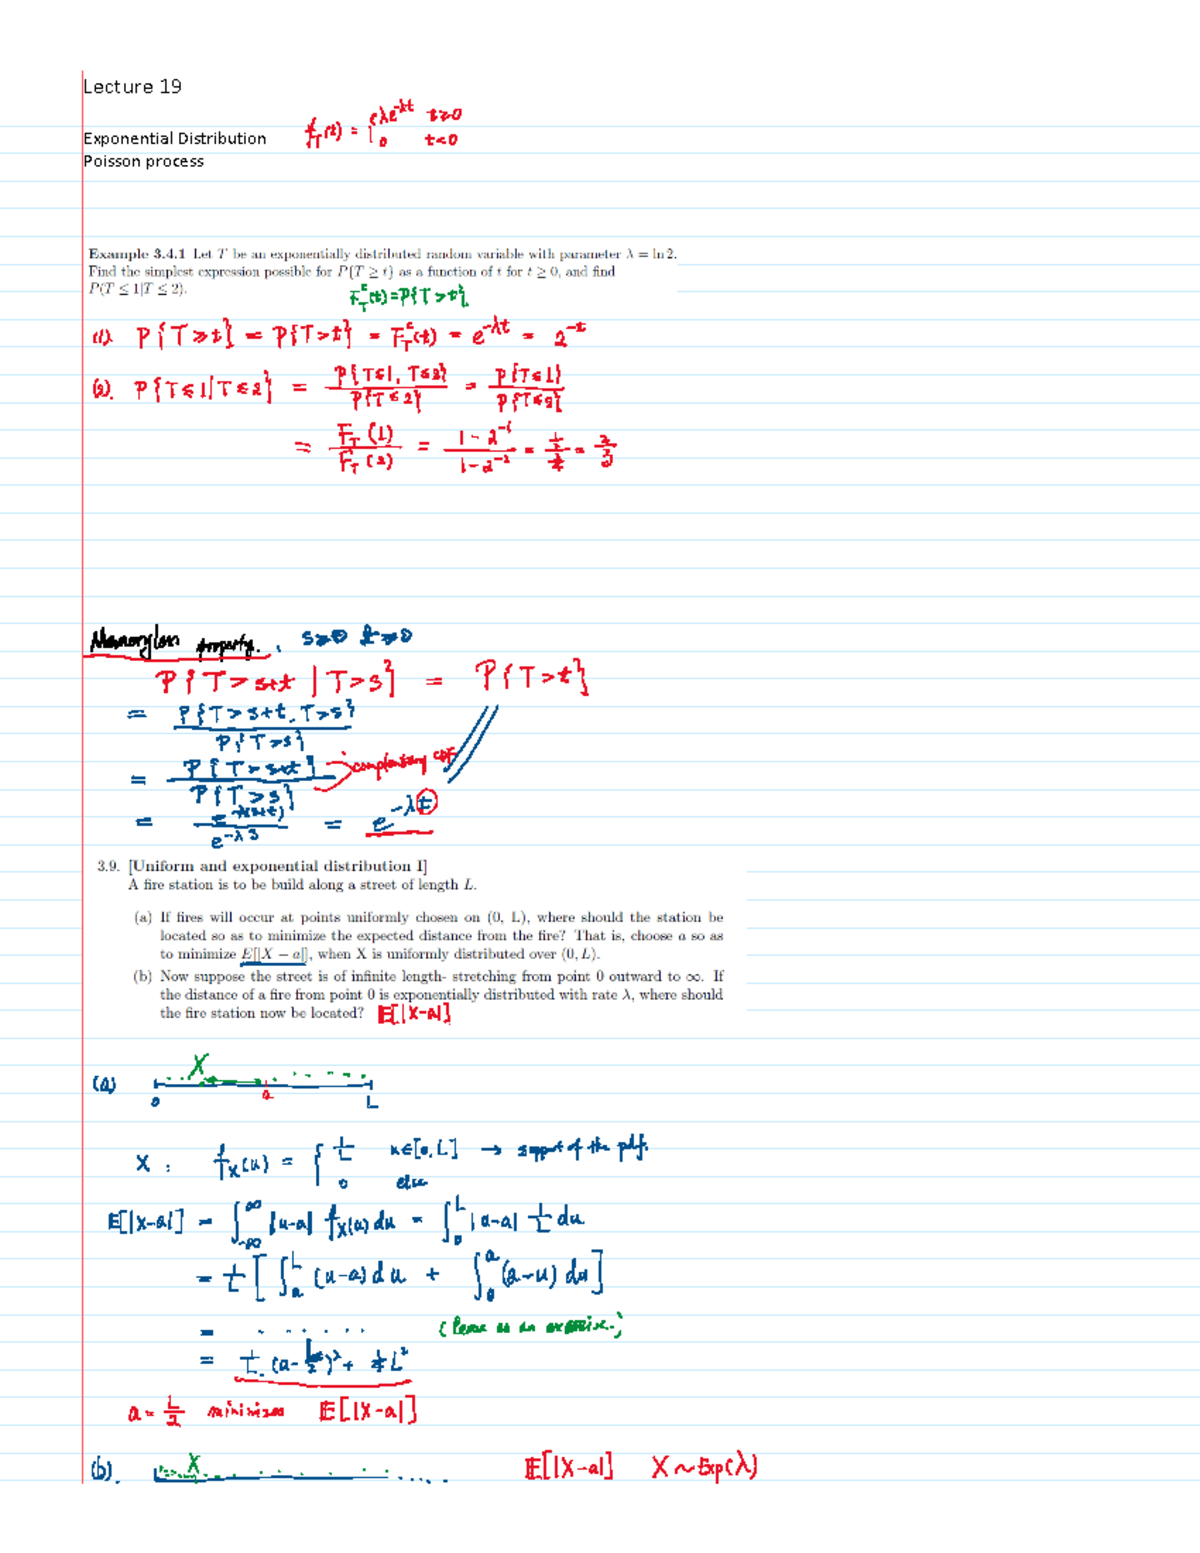 Lecture 19
f_T(t) = { λe^{-λt} t≥0
0 t<0
Exponential Distribution
Poisson process
Example 3.4.1 Let T be an exponentially distributed random variable with parameter λ = ln 2.
Find the simplest expression possible for P{T ≥ t} as a function of t for t ≥ 0, and find
P(T ≤ 1|T ≤ 2).
F_T^c(t) = P{T > t}
(1). P{T ≥ t} = P{T > t} = F_T^c(t) = e^{-λt} = 2^{-t}
(2). P{T ≤ 1 | T ≤ 2} = P{T≤1, T≤2} / P{T ≤ 2} = P{T≤1} / P{T≤2}
= F_T(1) / F_T(2) = (1 - 2^{-1}) / (1 - 2^{-2}) = 2/3
Memoryless property. , s≥0 t≥0
P{T > s+t | T > s} = P{T > t}
= P{T > s+t, T > s} / P{T > s}
= P{T > s+t} / P{T > s} complementary CDF
= e^{-λ(s+t)} / e^{-λs} = e^{-λt}
3.9. [Uniform and exponential distribution I]
A fire station is to be build along a street of length L.
(a) If fires will occur at points uniformly chosen on (0, L), where should the station be
located so as to minimize the expected distance from the fire? That is, choose a so as
to minimize E[|X − a|], when X is uniformly distributed over (0, L).
(b) Now suppose the street is of infinite length- stretching from point 0 outward to ∞. If
the distance of a fire from point 0 is exponentially distributed with rate λ, where should
the fire station now be located? E[|X-a|]
X
(a)
0 a L
X : f_X(u) = { 1/L u∈[0, L] → support of the pdf.
0 else
E[|X-a|] = ∫_{-∞}^{∞} |u-a| f_X(u) du = ∫_0^L |u-a| 1/L du
= 1/L [ ∫_a^L (u-a) du + ∫_0^a (a-u) du ]
= . . . . . . (leave as an exercise.)
= 1/L (a - L/2)² + 1/4 L²
a = L/2 minimizes E[|X-a|]
(b). X .... E[|X-a|] X ~ Exp(λ)